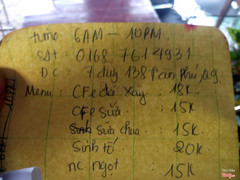 time: 6AM - 10PM.
SĐT: 0168 7614931
ĐC: 7 duy 138 Trần Phú
Menu: CFe đá xay: 18K
CFe sữa: 15K
Sữa chua: 15K
Sinh tố: 20K
nc ngọt 15K